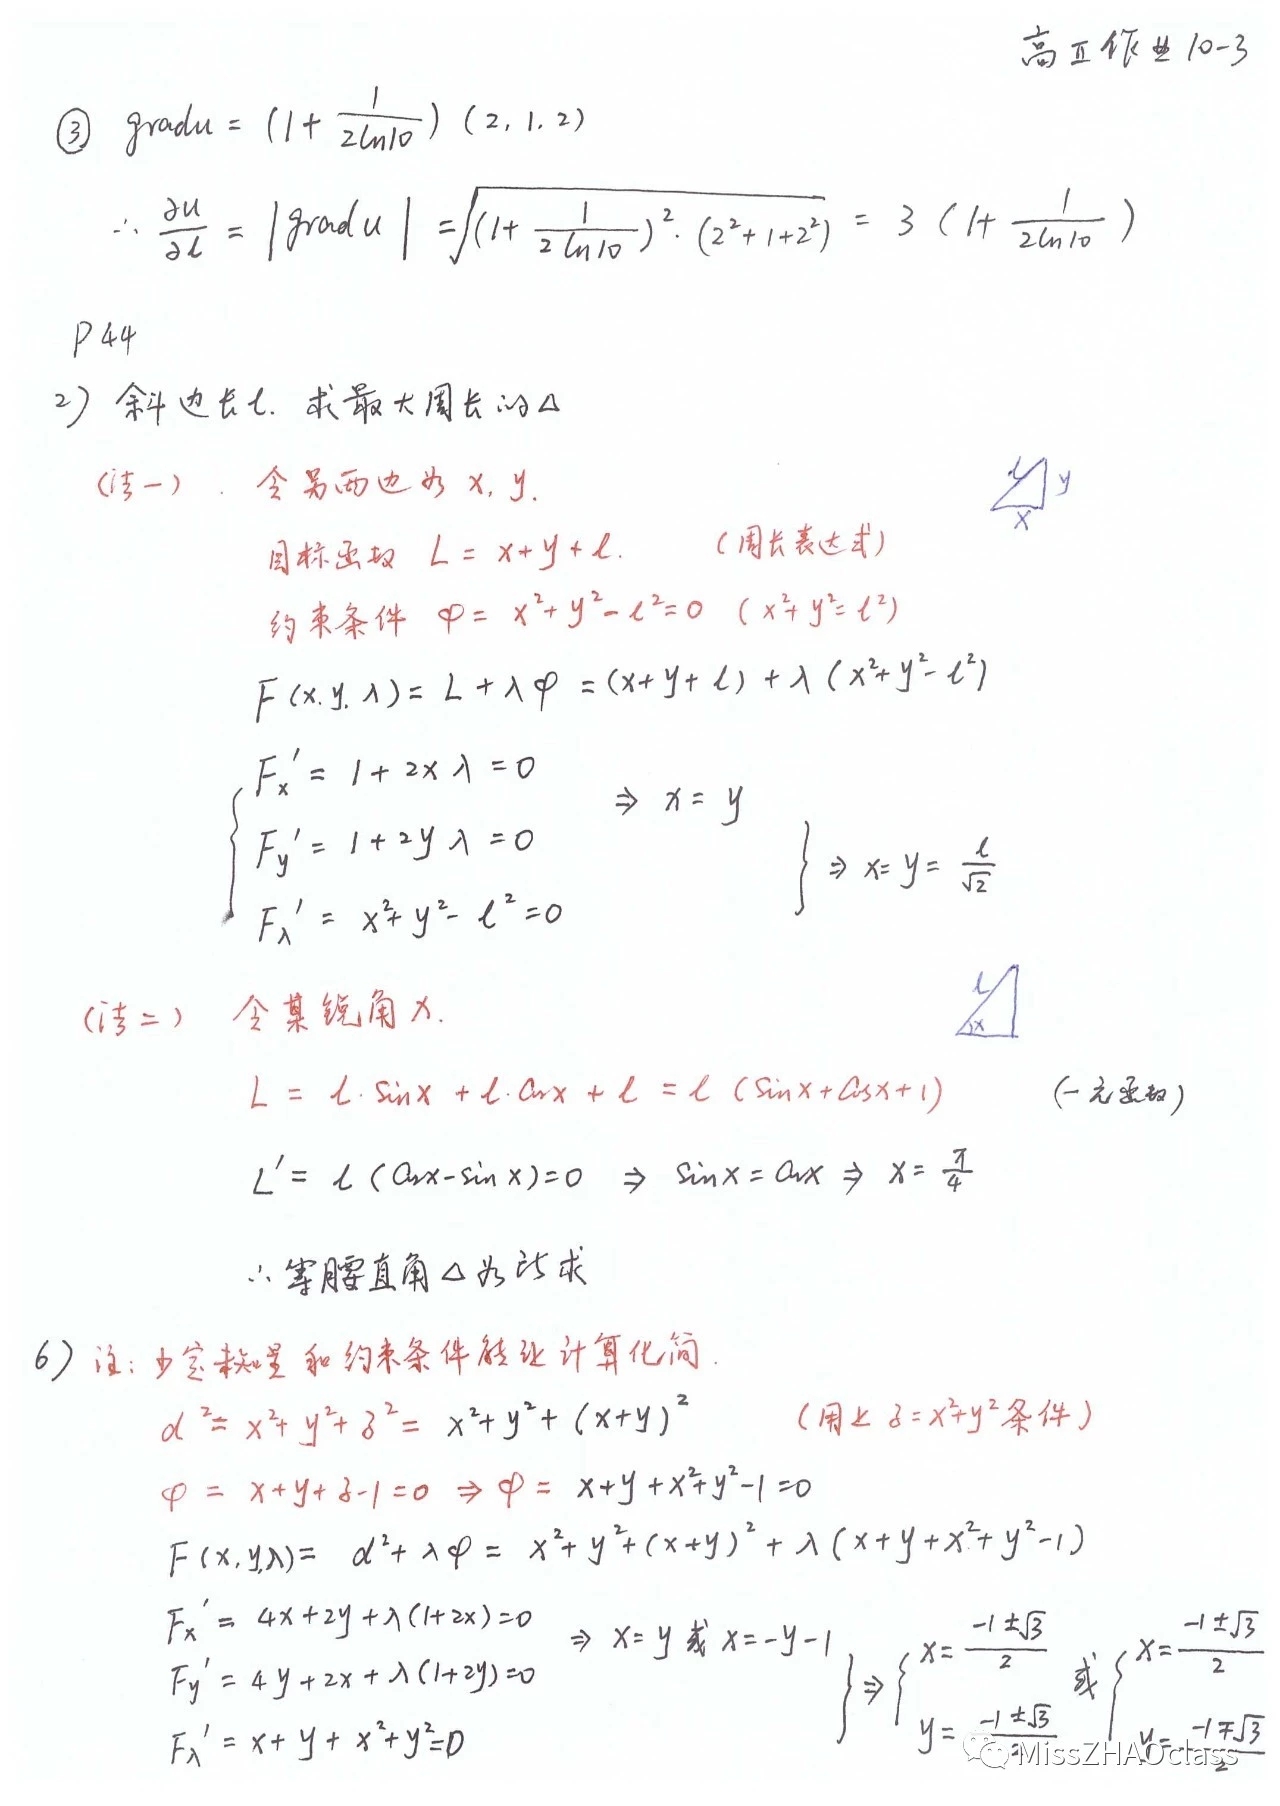 高Ⅱ作业10-3
③ gradu = (1+ 1/(2ln10)) (2, 1, 2)
∴ ∂u/∂l = |gradu| = √((1+ 1/(2ln10))²·(2²+1+2²)) = 3 (1+ 1/(2ln10))
P44
2) 斜边长l. 求最大周长的△
(法一). 令另两边为 x, y.
l y x
目标函数 L = x+y+l. (周长表达式)
约束条件 φ = x²+y²-l²=0 (x²+y²=l²)
F(x, y, λ) = L+λφ = (x+y+l)+λ(x²+y²-l²)
Fx′ = 1+2xλ=0
⇒ x = y
Fy′ = 1+2yλ=0
} ⇒ x=y= l/√2
Fλ′ = x²+y²-l²=0
(法二) 令某锐角x.
l x
L = l·Sinx + l·Cosx + l = l (Sinx+Cosx+1) (一元函数)
L′ = l (Cosx-Sinx)=0 ⇒ Sinx=Cosx ⇒ x= π/4
∴ 等腰直角△为所求
6) 注: 少字未知量和约束条件能让计算化简.
d²= x²+y²+z² = x²+y²+(x+y)² (用上z=x²+y²条件)
φ = x+y+z-1=0 ⇒ φ = x+y+x²+y²-1=0
F(x,y,λ)= d²+λφ = x²+y²+(x+y)²+λ(x+y+x²+y²-1)
Fx′ = 4x+2y+λ(1+2x)=0
⇒ x=y 或 x=-y-1
Fy′ = 4y+2x+λ(1+2y)=0
Fλ′ = x+y+x²+y²=0
} ⇒ { x= (-1±√3)/2 y= (-1±√3)/2 或 { x= (-1±√3)/2 y= (-1∓√3)/2
MissZHAOclass